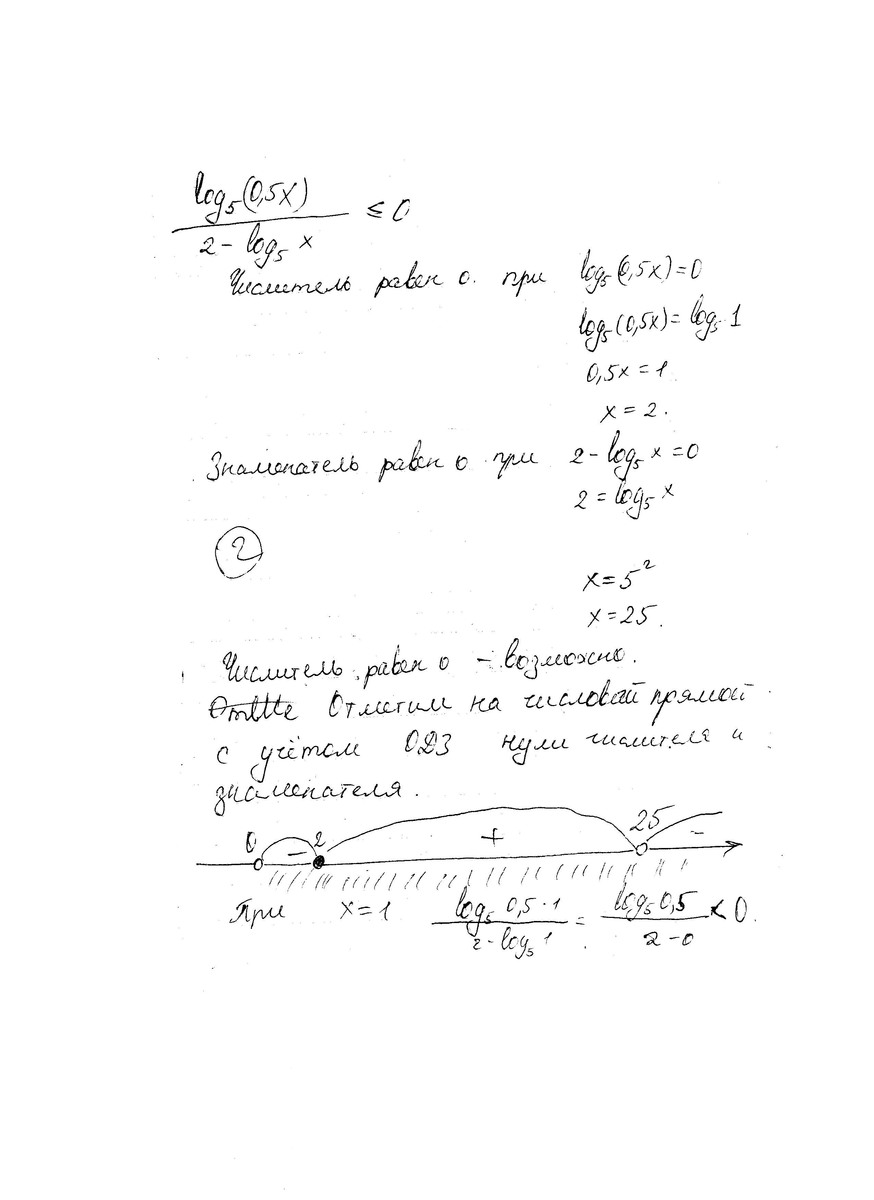 log₅(0,5x) / 2 - log₅ x ≤ 0
Числитель равен 0 при log₅(0,5x)=0
log₅(0,5x) = log₅ 1
0,5x = 1
x = 2.
Знаменатель равен 0 при 2 - log₅ x = 0
2 = log₅ x
2
x = 5²
x = 25.
Числитель равен 0 - возможно.
Отметим на числовой прямой
с учётом ОДЗ нули числителя и
знаменателя.
0 2 25
- + -
При x = 1 log₅ 0,5 · 1 / 2 - log₅ 1 = log₅ 0,5 / 2 - 0 < 0.